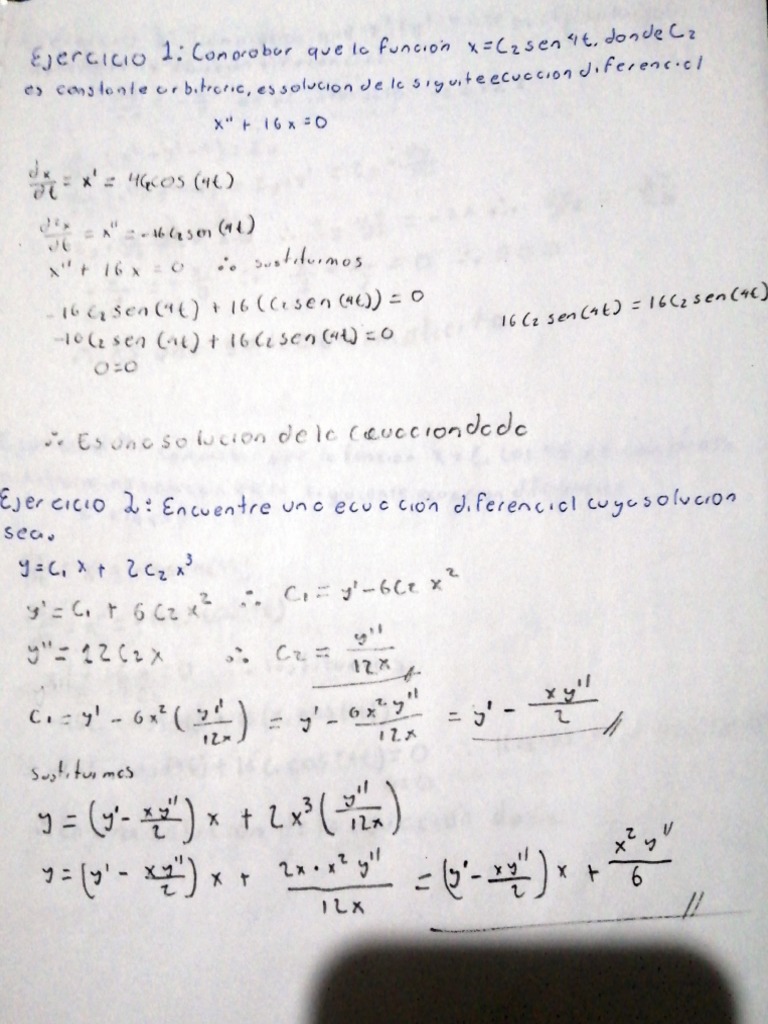 Ejercicio 1: Comprobar que la función x = C₂ sen 4t. donde C₂
es constante arbitraria, es solución de la siguite ecuccion diferencial
x'' + 16x = 0
dx/dt = x' = 4C₂cos (4t)
d²x/dt = x'' = -16C₂ sen (4t)
x'' + 16x = 0 ∴ sustituimos
-16C₂ sen(4t) + 16(C₂ sen(4t)) = 0
-16C₂ sen (4t) + 16C₂ sen(4t) = 0 16C₂ sen(4t) = 16C₂ sen(4t)
0=0
∴ Es una solucion de la ecuaccion dada
Ejercicio 2: Encuentre una ecuacción diferencial cuya solucion
sea.
y = C₁ x + 2C₂x³
y' = C₁ + 6C₂x² ∴ C₁ = y' - 6C₂ x²
y'' = 12C₂x ∴ C₂ = y''/12x
C₁ = y' - 6x² (y''/12x) = y' - 6x² y''/12x = y' - xy''/2 //
sustituimos
y = (y' - xy''/2) x + 2x³ (y''/12x)
y = (y' - xy''/2) x + 2x · x² y''/12x = (y' - xy''/2) x + x² y''/6 //